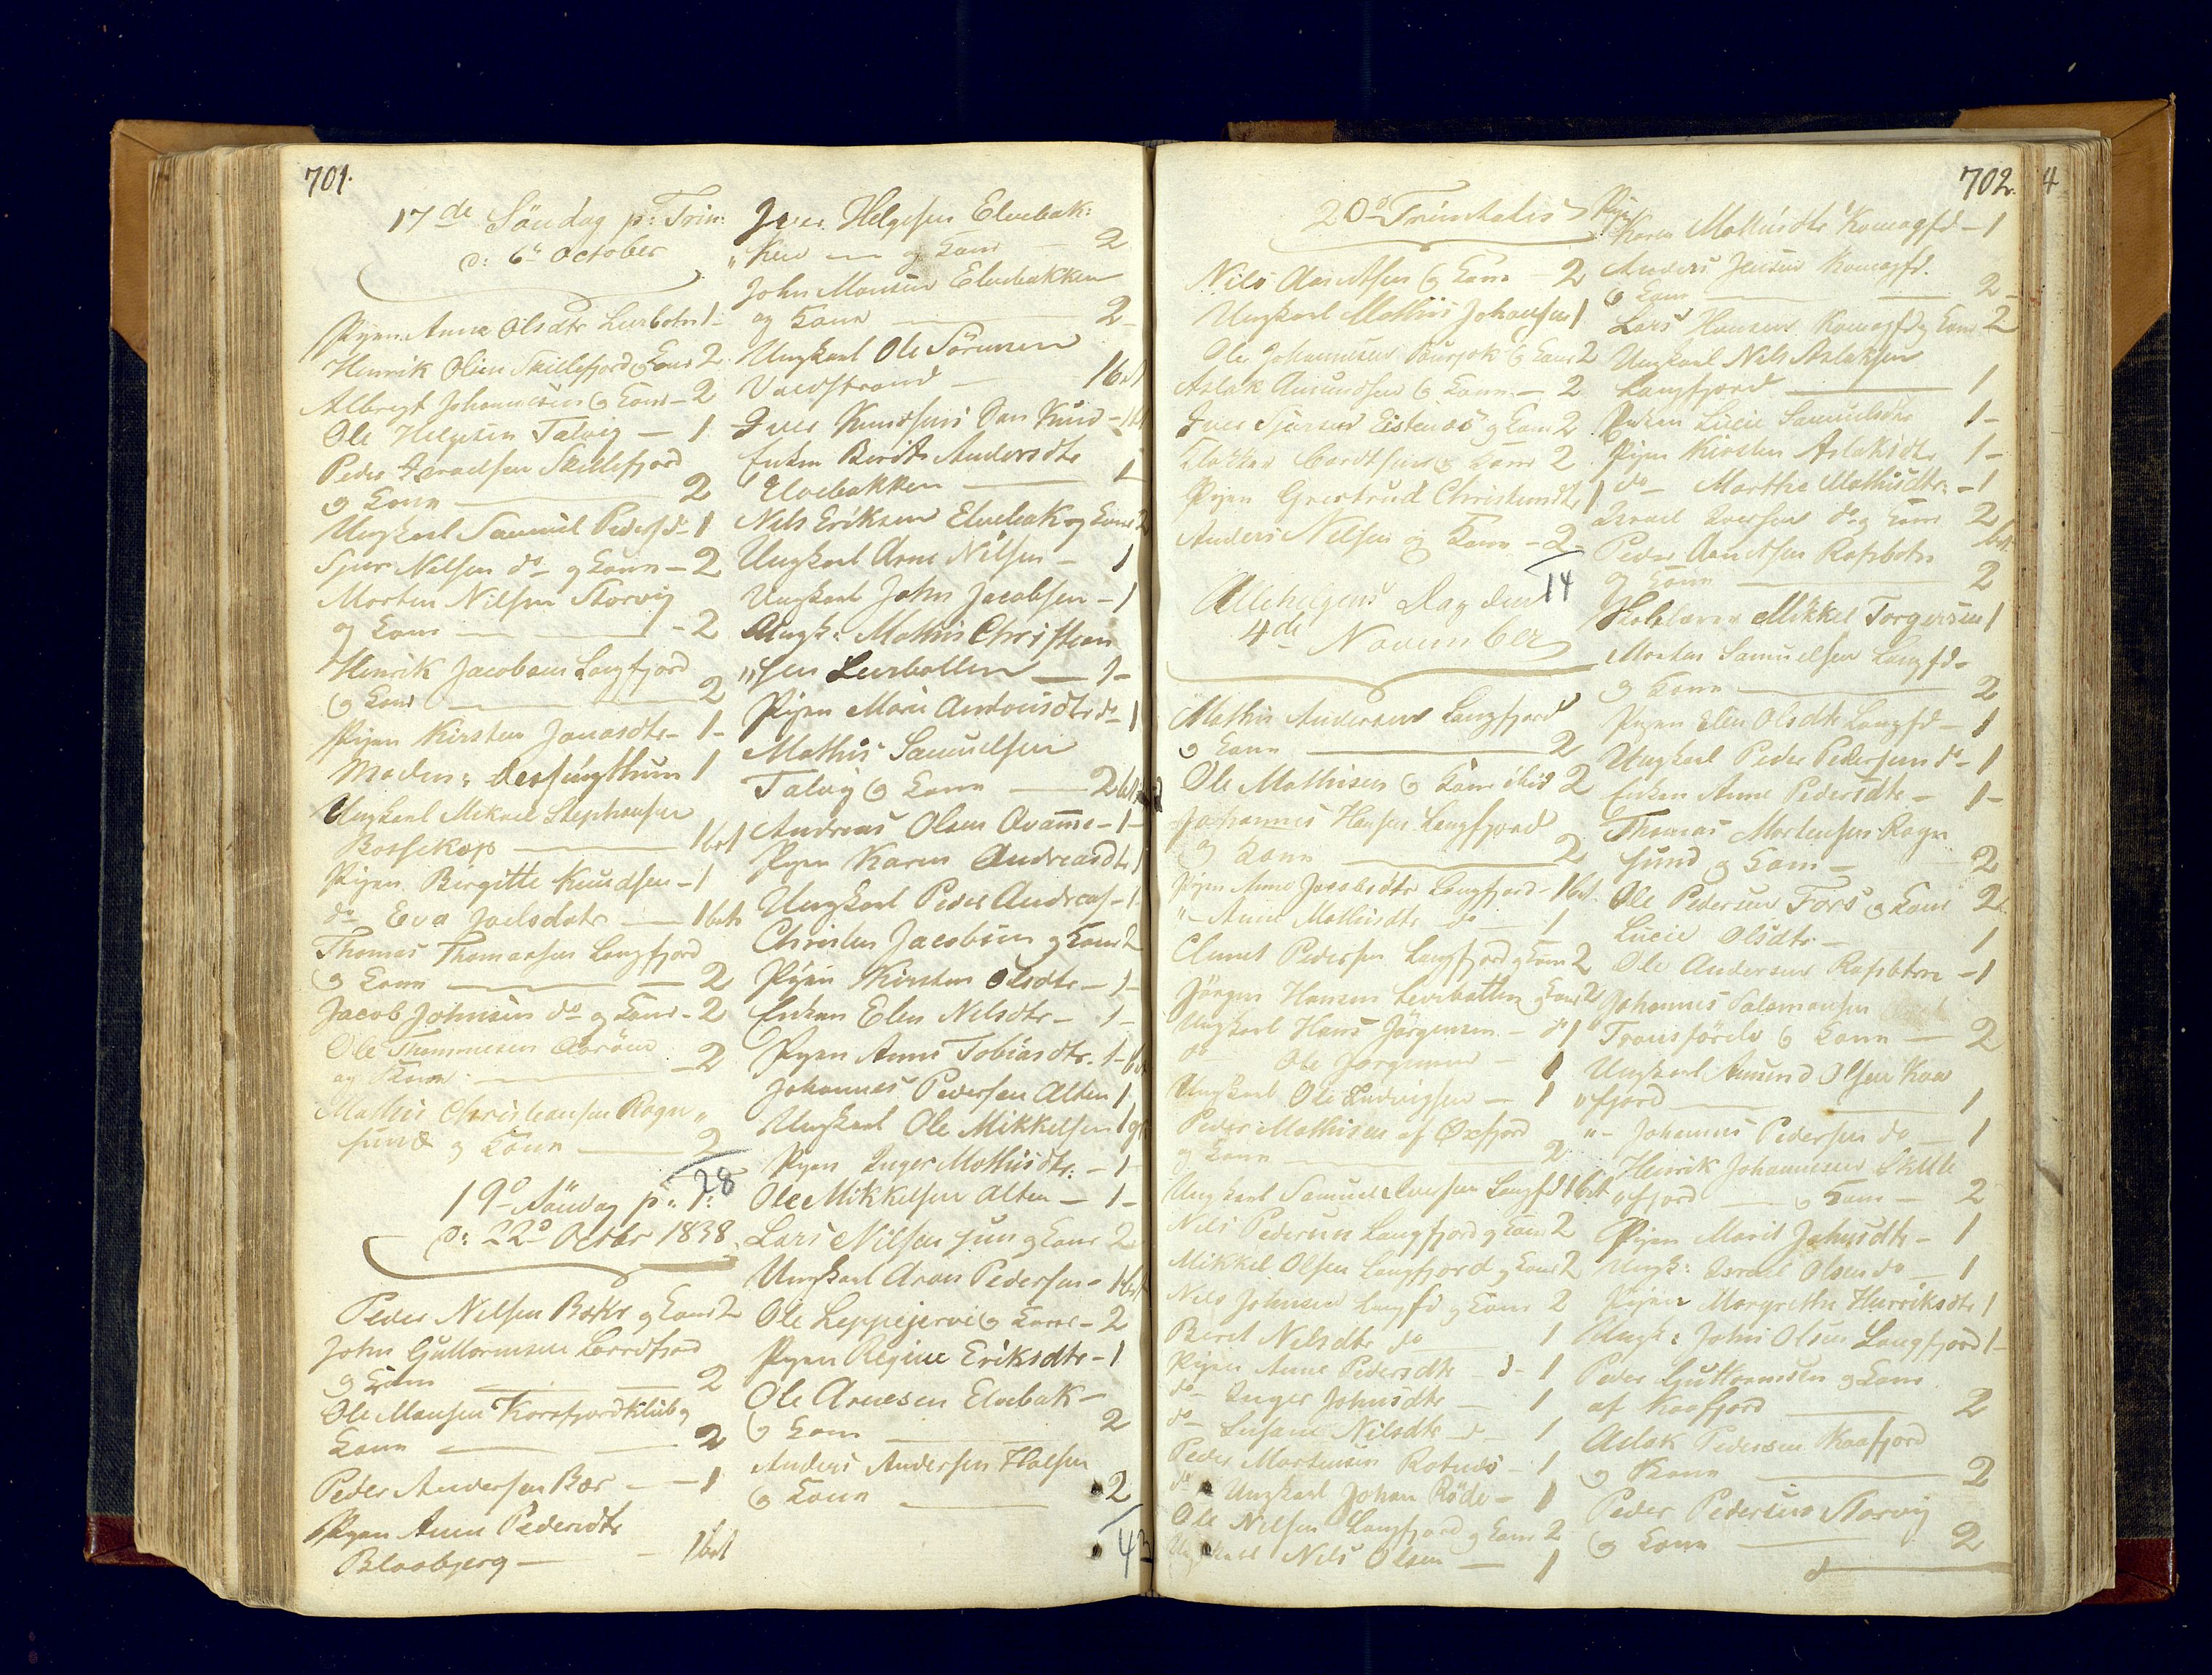 701.
17de Söndag p: Trin:
d: 6te October
Pigen Anne Olsdtr Leerbotn 1
Henrik Olsen Skillefjord og Kone 2
Albregt Johannesen og Kone - 2
Ole Helgesen Talvig - 1
Peder Israelsen Skillefjord
og Kone - 2
Ungkarl Samuel Peders do 1
Sjur Nilsen do og Kone - 2
Morten Nilsen Storvig
og Kone - 2
Henrik Jacobsen Langfjord
og Kone - 2
Pigen Kirsten Jonasdtr - 1 -
Madm: 1
Ungkarl Mekael Stephensen
Bossekop - 1 bet
Pigen Birgitte Knudsen - 1
do Eva Joelsdatr - 1 bet
Thomas Thomassen Langfjord
og Kone - 2
Jacob Johnsen do og Kone - 2
Ole Thommesen Aaröen
og Kone - 2
Mathis Christiansen Rogn
sund og Kone - 2
28
19de Söndag p: T:
d: 22de Octbr 1838
Peder Nilsen Bækr og Kone 2
John Guttormsen
og Kone - 2
Ole Monsen Korsfjord Klub og
Kone - 2
Peder Andersen Bær - 1
Pigen Anne Pedersdtr
Blaabjerg - 1 bet
Iver Helgesen Elvebak:
" Ken og Kone 2
John Monsen Elvebakken
og Kone - 2 -
Ungkarl Ole Sörensen
Vaedstrand - 1 bet
Iver Knudsens Søn Knud - 1
Enken Berit Andersdtr
Elvebakken - 1
Nils Eriksen Elvebak og Kone 2
Ungkarl Arne Nilsen - 1
Ungkarl John Jacobsen - 1
Ungk: Mathis Christian
"sen Leerbotten - 1 -
Pigen Marie Antonisdtr do - 1
Mathis Samuelsen
Talvig og Kone - 2 bet
Andreas Olsen Qvanne - 1 -
Pigen Karen Andreasdtr 1
Ungkarl Peder Andreas - 1 -
Christen Jacobsen og Kone 2
Pigen Kirsten Olsdtr - 1 -
Enken Elen Nilsdtr - 1 -
Pigen Anne Tobiasdtr. 1 - bet
Johannes Pedersen Alten 1
Ungkarl Ole Mikkelsen 1
Pigen Inger Mathisdtr: - 1
Ole Mikkelsen Alten - 1 -
Lars Nilsen jun og Kone 2
Ungkarl Aron Pedersen - 1 bet
Ole Leppejervi og Kone - 2
Pigen Regine Eriksdtr - 1
Ole Arnesen Elvebak -
og Kone 2
Anders Andersen Halsen
og Kone - 2
43
702. 4
20de Trinitatis
Nils Arntsen og Kone - 2
Ungkarl Mathis Johansen 1
Ole Johannesen og Kone 2
Aslak Amundsen og Kone - 2
Iver Sjursen og Kone 2
og Kone 2
Pigen Giertrud Christensdtr 1
Anders Nilsen og Kone - 2 -
14
Allehelgens Dag den
4de November
Mathis Andersen Langfjord
og Kone - 2
Ole Mathisen og Kone ibid 2
Johannes Hansen Langfjord
og Kone - 2
Pigen Anne Jacobsdtr Langfjord - 1 bet
" - Anne Mathisdtr do - 1
Clemet Pedersen Langfjord og Kone 2
Jörgen Hansen Leerbotten og Kone 2
Ungkarl Hans Jörgensen - do 1
do Ole Jörgensen - 1
Ungkarl Ole Ludvigsen - 1
Peder Mathisen af Øxfjord
og Kone - 2
Ungkarl Samuel Iversen Langfd 1 bet
Nils Pedersen Langfjord og Kone 2
Mikkel Olsen Langfjord og Kone 2
Nils Johnsen Langfd og Kone 2
Beret Nilsdtr do 1
Pigen Anne Pedersdtr - d - 1
do Inger Johnsdtr - 1
do Susane Nilsdtr - d - 1
Peder Mortensen - 1
do Ungkarl Johan Röde - 1
Ole Nilsen Langfjord og Kone 2
Ungkarl Nils Olsen - 1
Pigen
Karen Mathisdtr Komagfd - 1
Anders Jensen Komagfd.
og Kone - 2 -
Lars Hansen Komagfd og Kone 2
Ungkarl Nils Aslaksen
Langfjord - 1
Enken Lucie Samuelsdtr 1 -
Pigen Kirsten Aslaksdtr 1 -
do - Marthe Mathisdtr: - 1
Israel Iversen do og Kone 2
Peder Arntsen Rafsbotn bet
og Kone - 2
Skolelærer Mikkel Torgersen 1
Morten Samuelsen Langfd -
og Kone - 2
Pigen Elen Olsdtr Langfd - 1
Ungkarl Peder Pedersen do - 1
Enken Anne Pedersdtr - 1 -
Thomas Mortensen Rogn
sund og Kone - 2
Ole Pedersen Fors og Kone 2
Lucie Olsdtr - 1
Ole Andersen Rafsbotn - 1
Johannes Salomonsen
Transfarelv og Kone - 2
Ungkarl Amund Olsen Kaa
"fjord - 1
" - Johannes Pedersen do - 1
Henrik Johannesen Skille
"fjord og Kone - 2
Pigen Marit Johnsdtr - 1
Ungk: Israel Olsen do - 1
Pigen Margrethe Henriksdtr 1
Ungk: John Olsen Langfjord 1 -
Peder Guttormsen og Kone
af Kaafjord - 2
Aslak Pedersen Kaafjord
og Kone - 2
Peder Pedersen Storvig
og Kone - 2